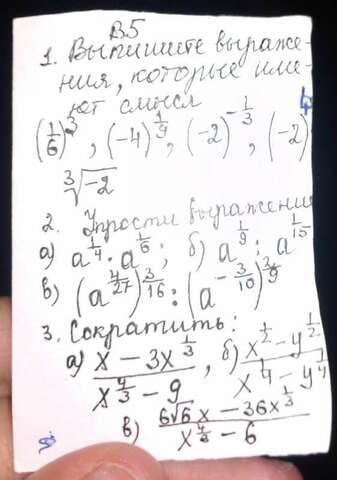 В5
1. Выпишите выраже-
ния, которые име-
ют смысл
(1/6)^3, (-4)^(1/9), (-2)^(-1/3), (-2)^4
∛-2
2. Упрости выражения
а) a^(1/4) · a^(1/6); б) a^(1/9) : a^(1/15)
в) (a^(4/27))^(3/16) : (a^(-3/10))^(2/9)
3. Сократить:
а) (x - 3x^(1/3))/(x^(4/3) - 9), б) (x^(1/2) - y^(1/2))/(x^(1/4) - y^(1/4))
в) (6√6x - 36x^(1/3))/(x^(4/3) - 6)